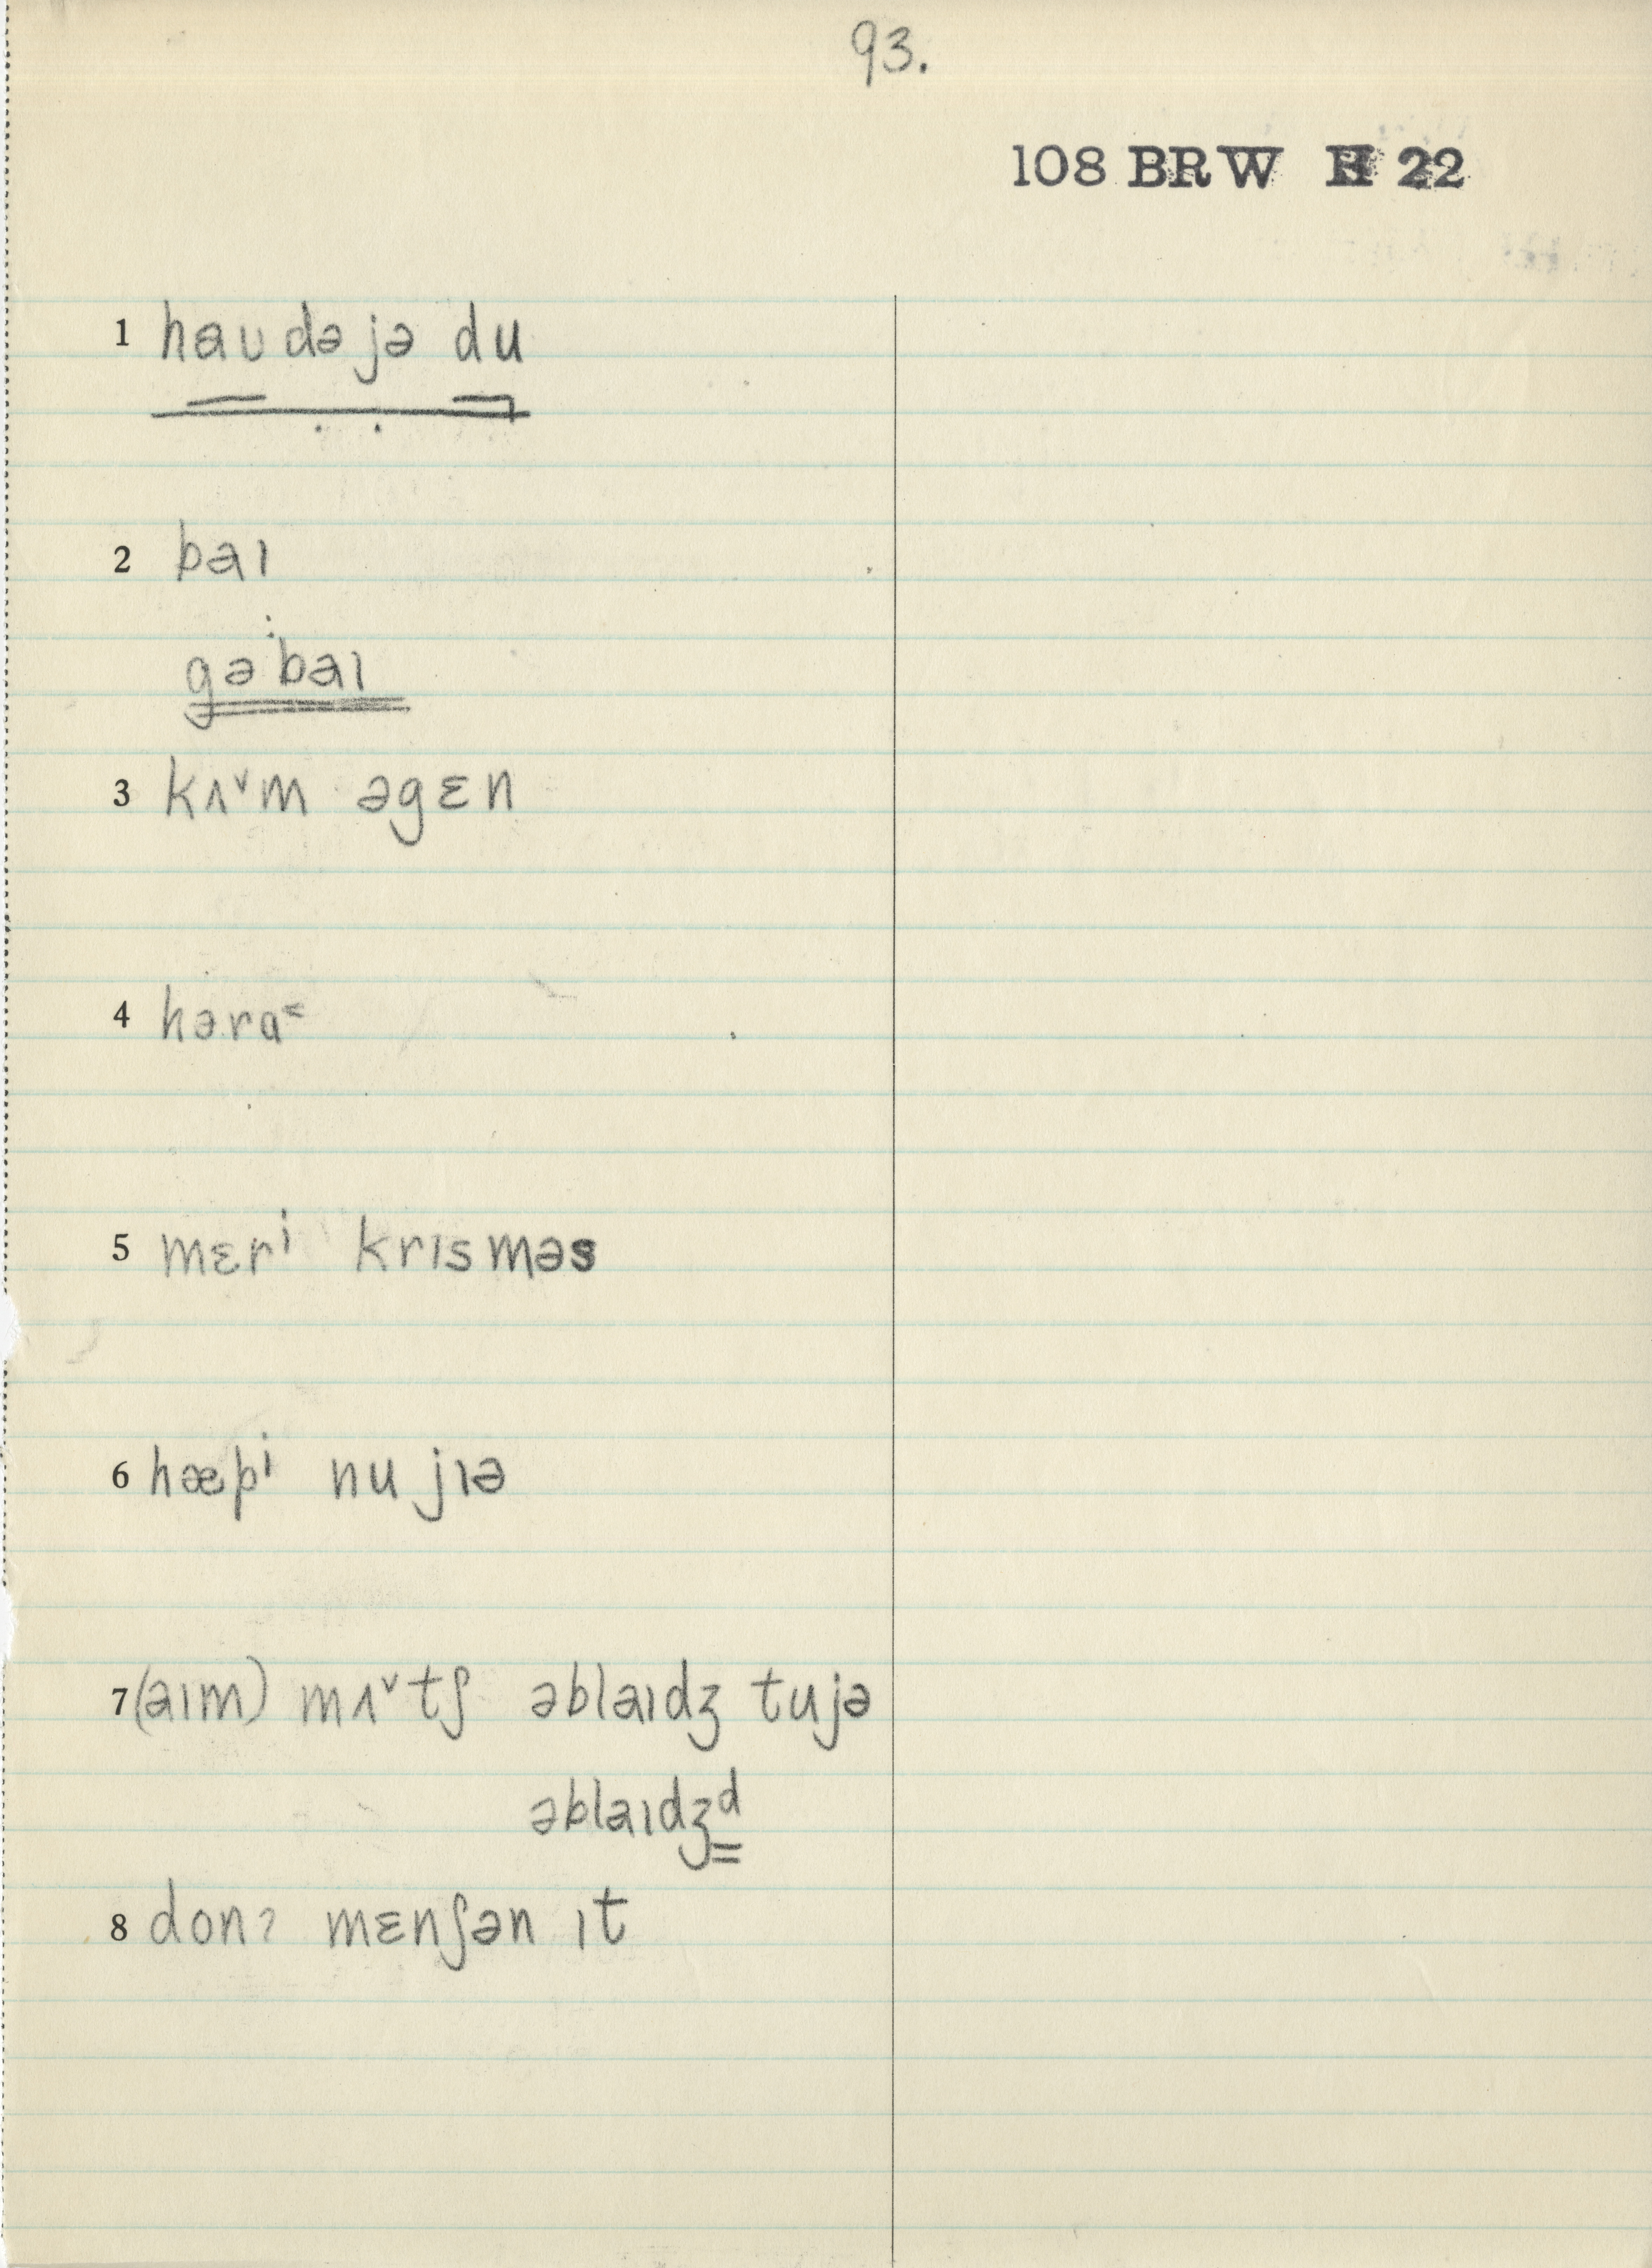 93.
108 BRW H 22
1 haʊdəjə du
2 baɪ
gəbaɪ
3 kʌ˅m əgɛn
4 həra˂
5 mɛrⁱ krɪsməs
6 hæpⁱ nu jɪə
7 (aɪm) mʌ˅tʃ əblaɪdʒ tujə
əblaɪdʒᵈ
8 donʔ mɛnʃən ɪt